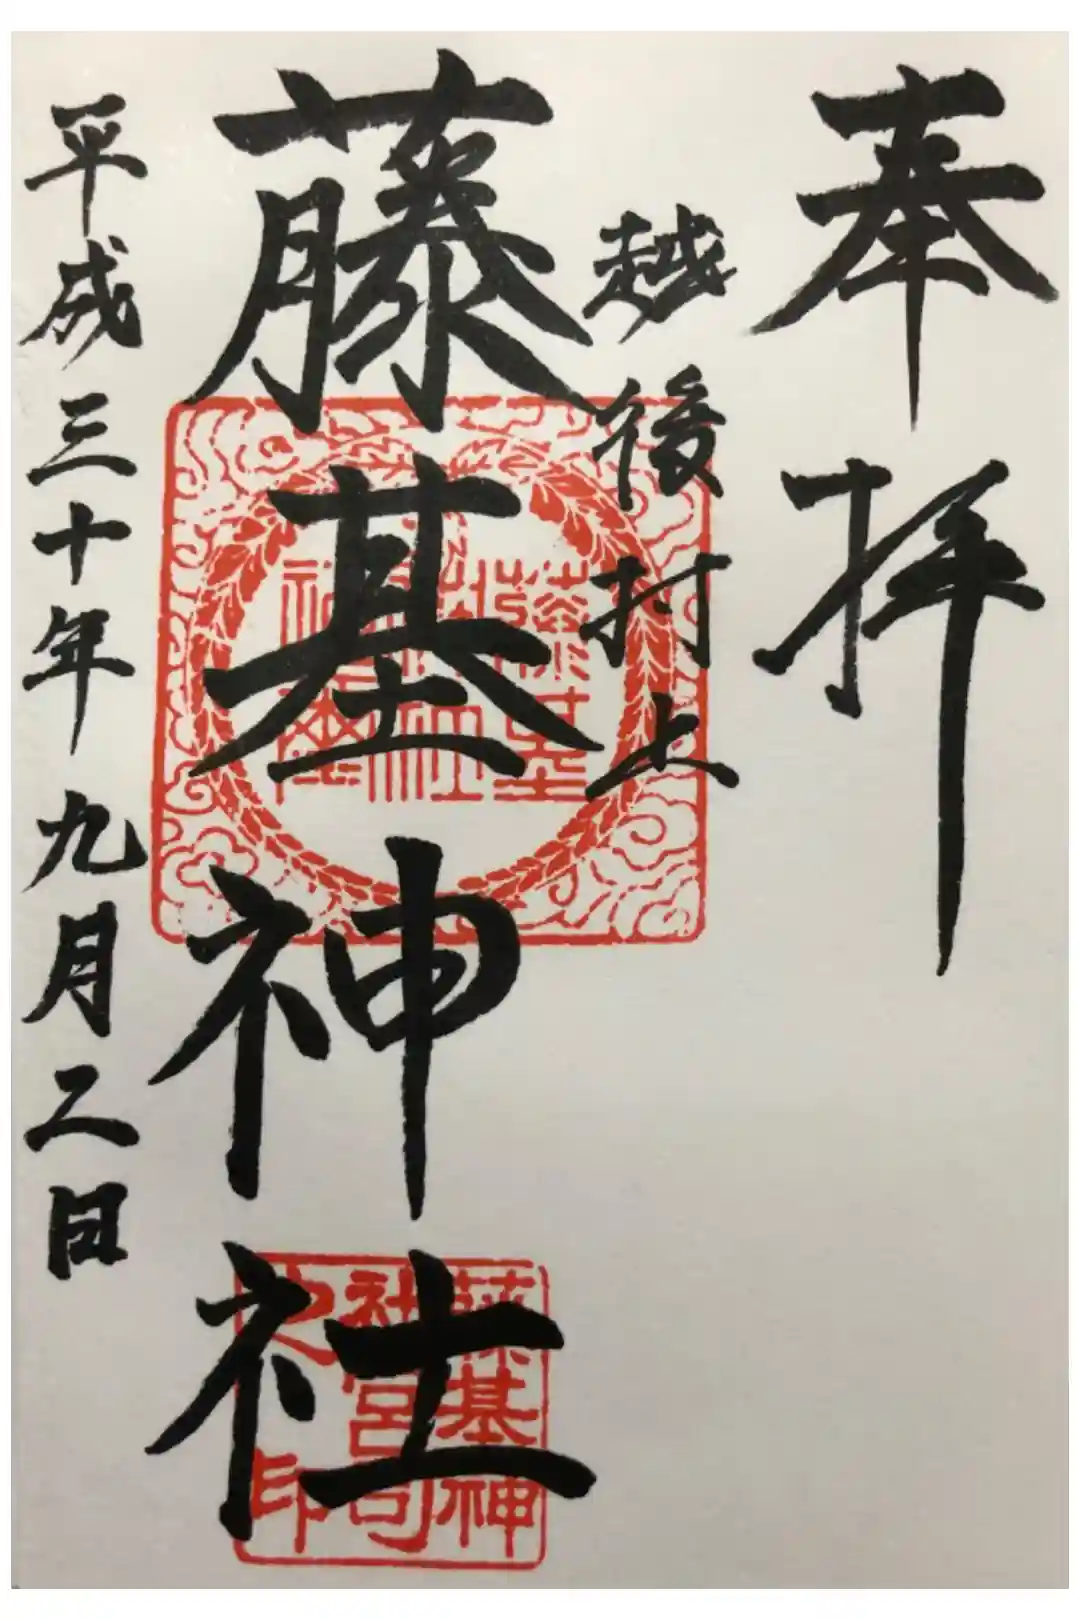 奉拝
越後村上
藤基神社
平成三十年九月二日
藤基神
社宮司
之印